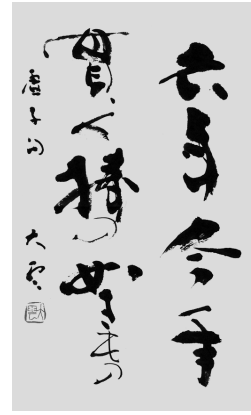 去年今年
貫く棒の如きもの
虚子句